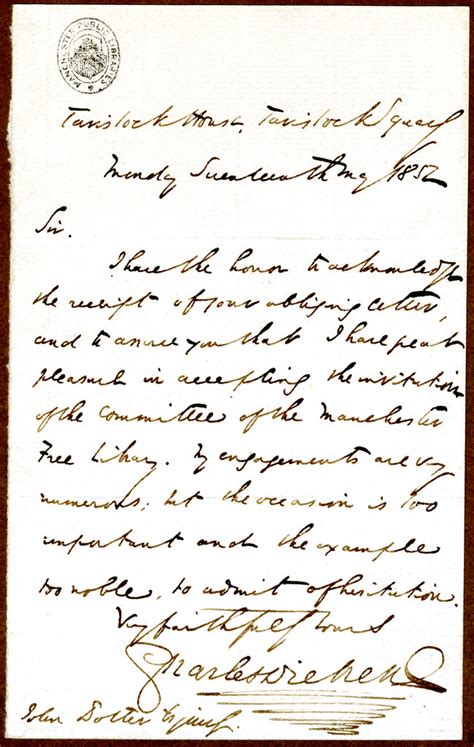 MANCHESTER PUBLIC LIBRARIES
Tavistock House, Tavistock Square
Monday Seventeenth May 1852
Sir.
I have the honor to acknowledge
the receipt of your obliging letter,
and to assure you that I have great
pleasure in accepting the invitation
of the Committee of the Manchester
Free Library. My engagements are very
numerous; but the occasion is too
important and the example
too noble, to admit of hesitation.
Very faithfully Yours
Charles Dickens
John Potter Esquire.